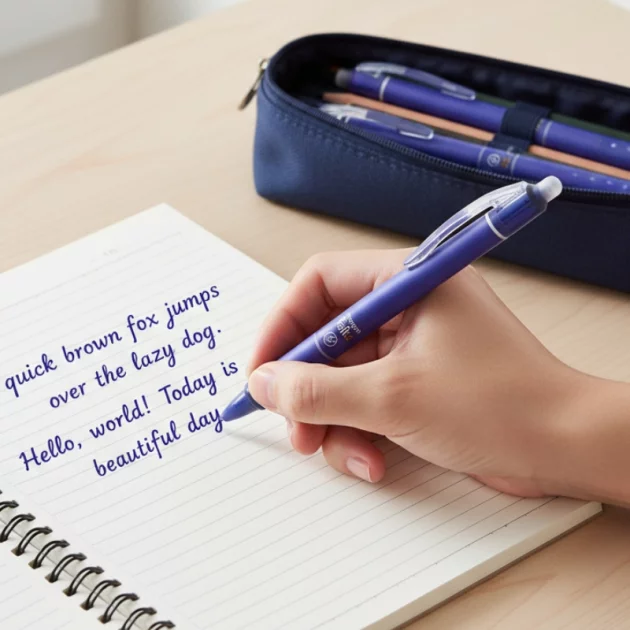 quick brown fox jumps
over the lazy dog.
Hello, world! Today is
beautiful day